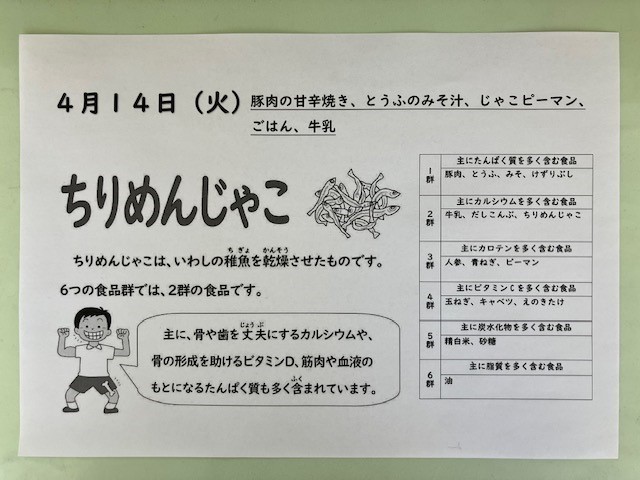 4月14日（火）豚肉の甘辛焼き、とうふのみそ汁、じゃこピーマン、
ごはん、牛乳
ちりめんじゃこ
ちりめんじゃこは、いわしの稚魚を乾燥させたものです。
ちぎょ かんそう
6つの食品群では、2群の食品です。
主に、骨や歯を丈夫にするカルシウムや、
じょうぶ
骨の形成を助けるビタミンD、筋肉や血液の
もとになるたんぱく質も多く含まれています。
ふく
1群 主にたんぱく質を多く含む食品
豚肉、とうふ、みそ、けずりぶし
2群 主にカルシウムを多く含む食品
牛乳、だしこんぶ、ちりめんじゃこ
3群 主にカロテンを多く含む食品
人参、青ねぎ、ピーマン
4群 主にビタミンCを多く含む食品
玉ねぎ、キャベツ、えのきたけ
5群 主に炭水化物を多く含む食品
精白米、砂糖
6群 主に脂質を多く含む食品
油